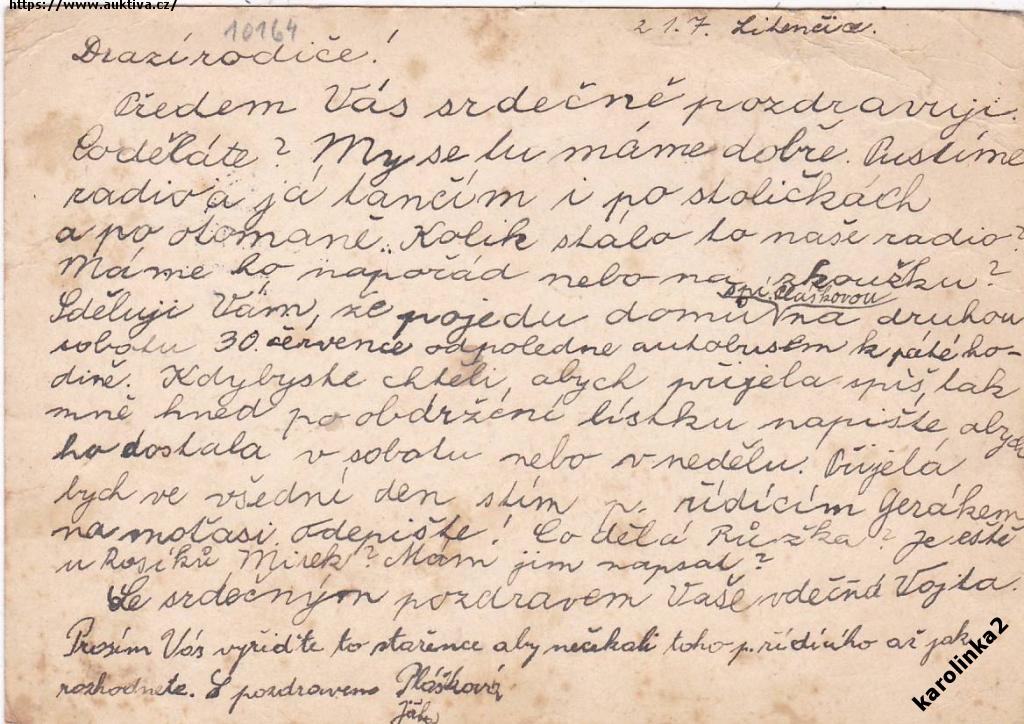 https://www.auktiva.cz/
10164
21.7. Litenčice.
Drazí rodiče!
Předem Vás srdečně pozdravuji.
Co děláte? My se tu máme dobře. Pustíme
radio a já tančím i po stoličkách
a po otomaně. Kolik stálo to naše radio?
Máme ho napořád nebo na zkoušku?
s pí. Pláškovou
Sděluji Vám, že pojedu domů na druhou
sobotu 30. července odpoledne autobusem k páté ho-
dině. Kdybyste chtěli, abych přijela spíš, tak
mně hned po obdržení lístku napište, abych
ho dostala v sobotu nebo v neděli. Přijela
bych ve všední den s tím p. řídícím Gerákem
na moťasi. Odepište! Co dělá Růžka? Je eště
u Rosíků Mirek? Mám jim napsat?
Se srdečným pozdravem Vaše vděčná Vojta.
Prosím Vás vyřiďte to stařence aby nečekali toho p. řídícího až jak
rozhodnete. S pozdravem Plášková
karolinka2